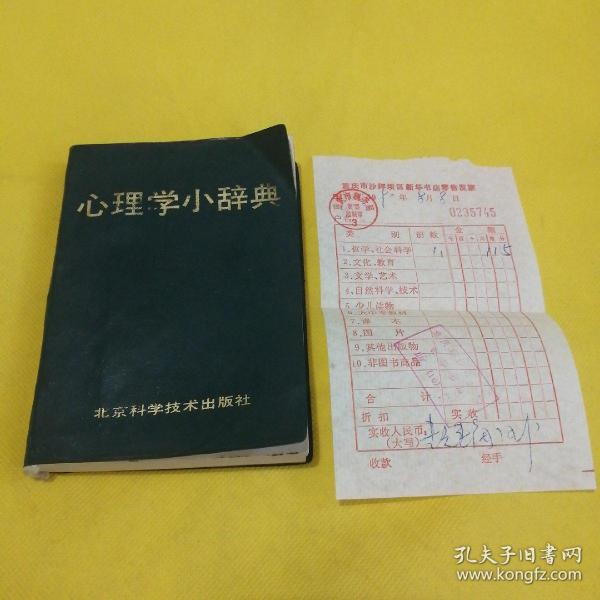 心理学小辞典
北京科学技术出版社
重庆市沙坪坝区新华书店零售发票
年 8 月 8 日
0235745
类 别 册数 金 额
1.哲学、社会科学
2.文化、教育
3.文学、艺术
4.自然科学、技术
5.少儿读物
7.课 本
8.图 片
9.其他出版物
10.非图书商品
合 计
折扣 实收
实收人民币
(大写)
收款 经手
孔夫子旧书网
www.kongfz.com